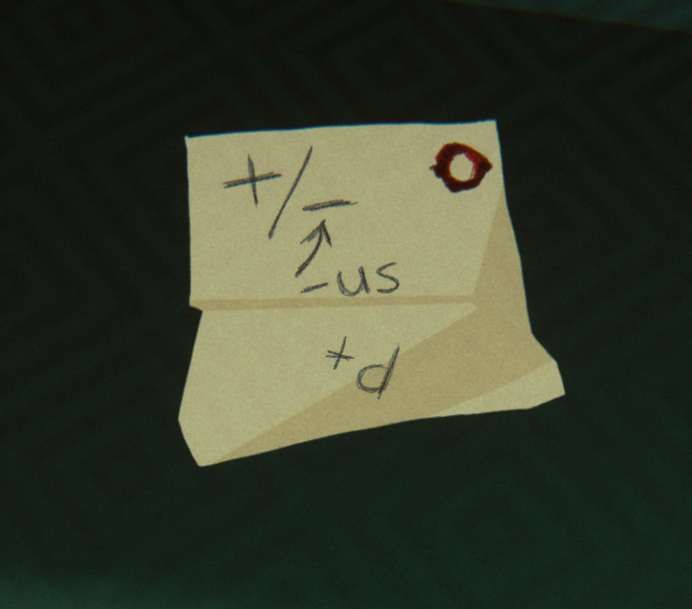 +/-
-us
+d